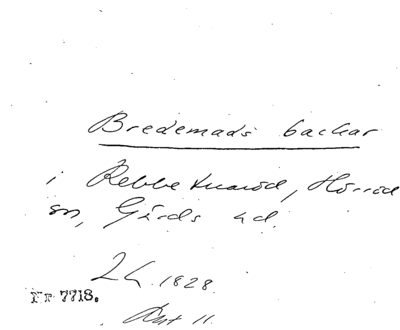 Bredemads backar
i Rebbetuaröd, Hörröd
sn, Gärds hd.
LL. 1828.
Nr 7718.
Avt 11.